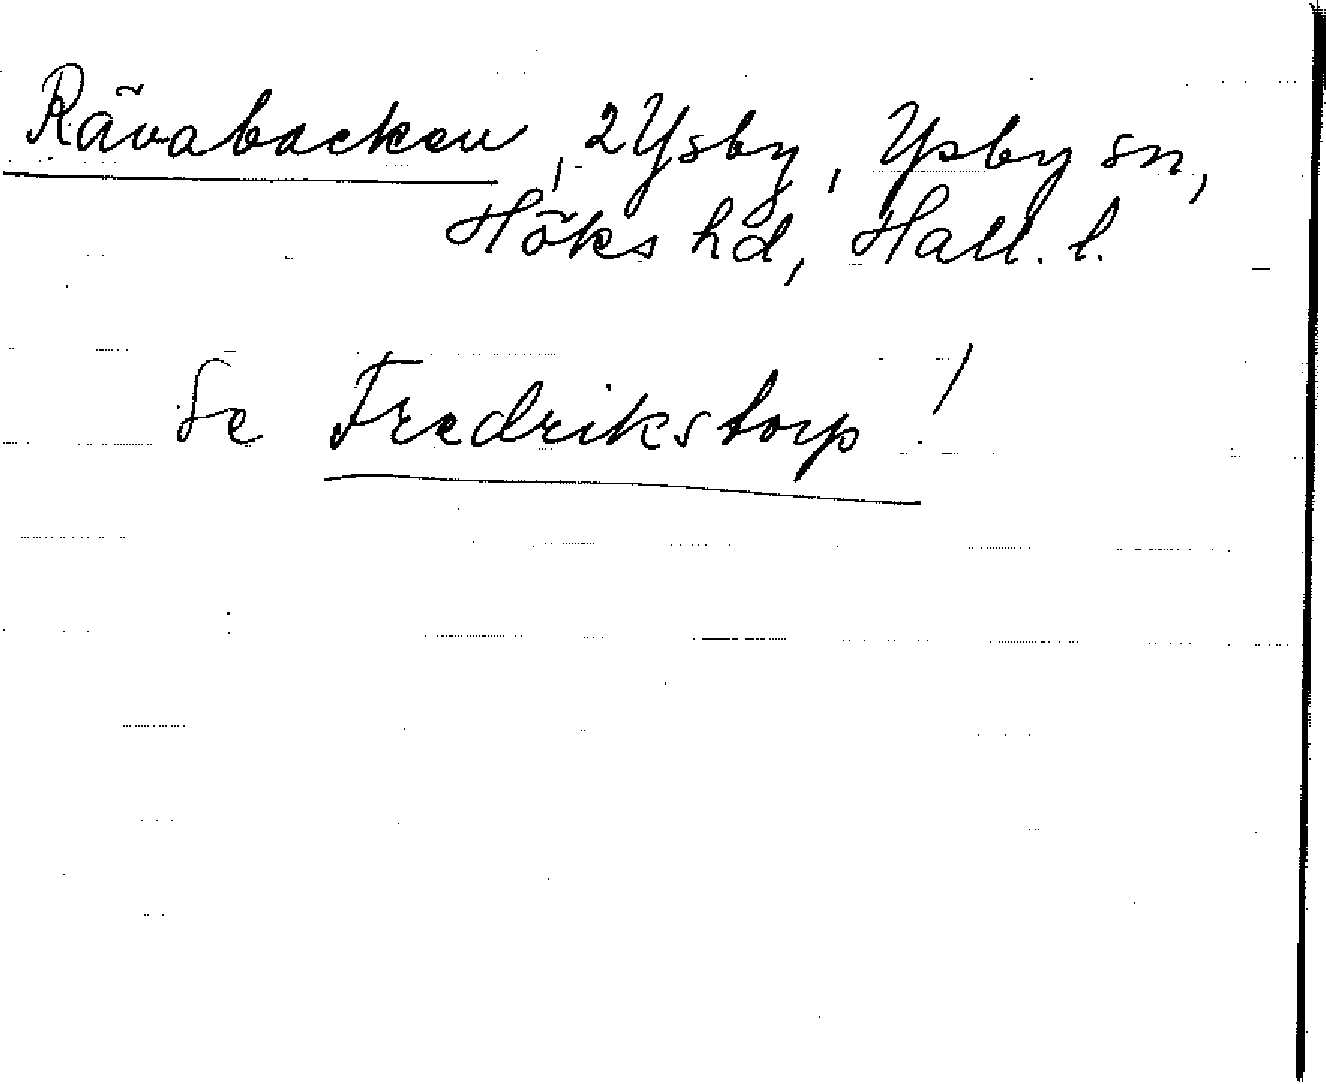 Rävabacken, 2 Ysby, Ysby sn,
Höks hd, Hall. l.
Se Fredrikstorp!